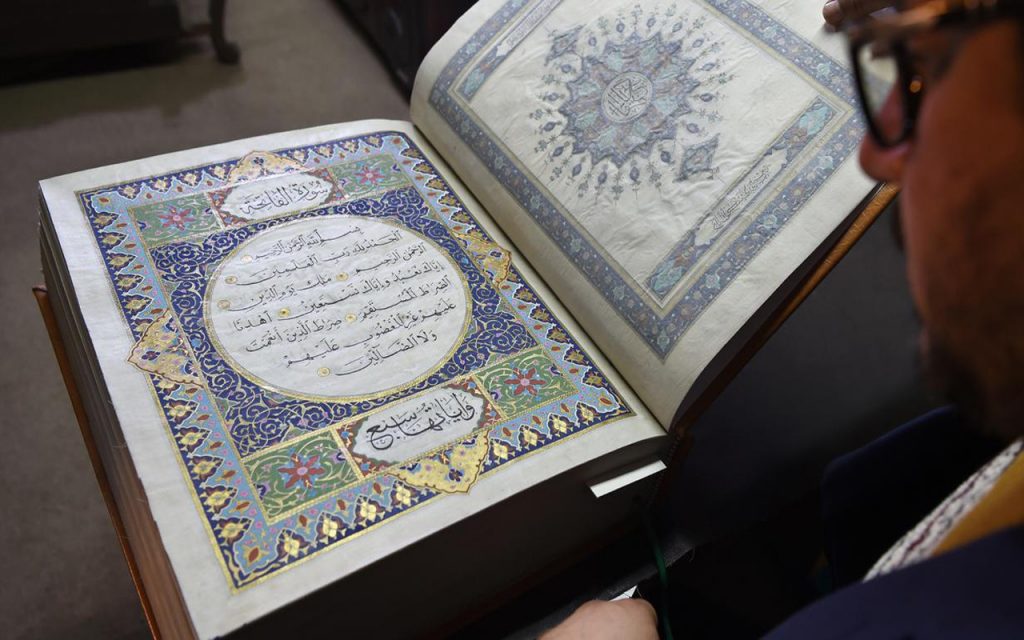 سورة الفاتحة
بسم الله الرحمن الرحيم
الحمد لله رب العلمين
الرحمن الرحيم ملك يوم الدين
إياك نعبد وإياك نستعين اهدنا
الصراط المستقيم صراط الذين أنعمت
عليهم غير المغضوب عليهم
ولا الضالين
وآياتها سبع